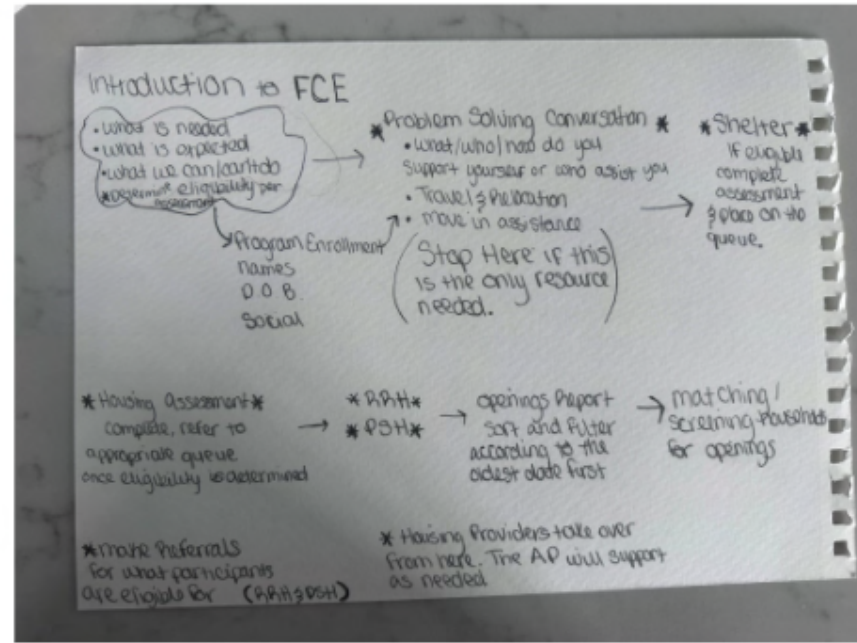 Introduction to FCE
• what is needed
• what is expected
• what we can/can't do
*Determine eligibility per
assessment
Program Enrollment
names
D.O.B.
Social
*Problem Solving Conversation *
• What/who/how do you
support yourself or who assist you
• Travel & Relocation
• move in assistance
(Stop Here if this
is the only resource
needed.)
*Shelter*
If eligible
complete
assessment
& place on the
queue.
*Housing assessment*
complete, refer to
appropriate queue
once eligibility is determined
*RRH*
*PSH*
openings Report
sort and filter
according to the
oldest date first
matching/
screening households
for openings
*make Referrals
for what participants
are eligible for (RRH & PSH)
* Housing Providers take over
from here. The AP will support
as needed